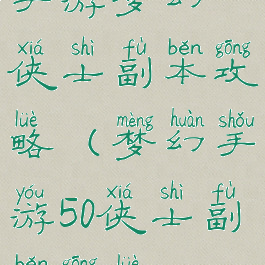 手游梦幻
xiá shì fù běn gōng
侠士副本攻
lüè mèng huàn shǒu
略（梦幻手
yóu xiá shì fù
游50侠士副
běn gōng lüè